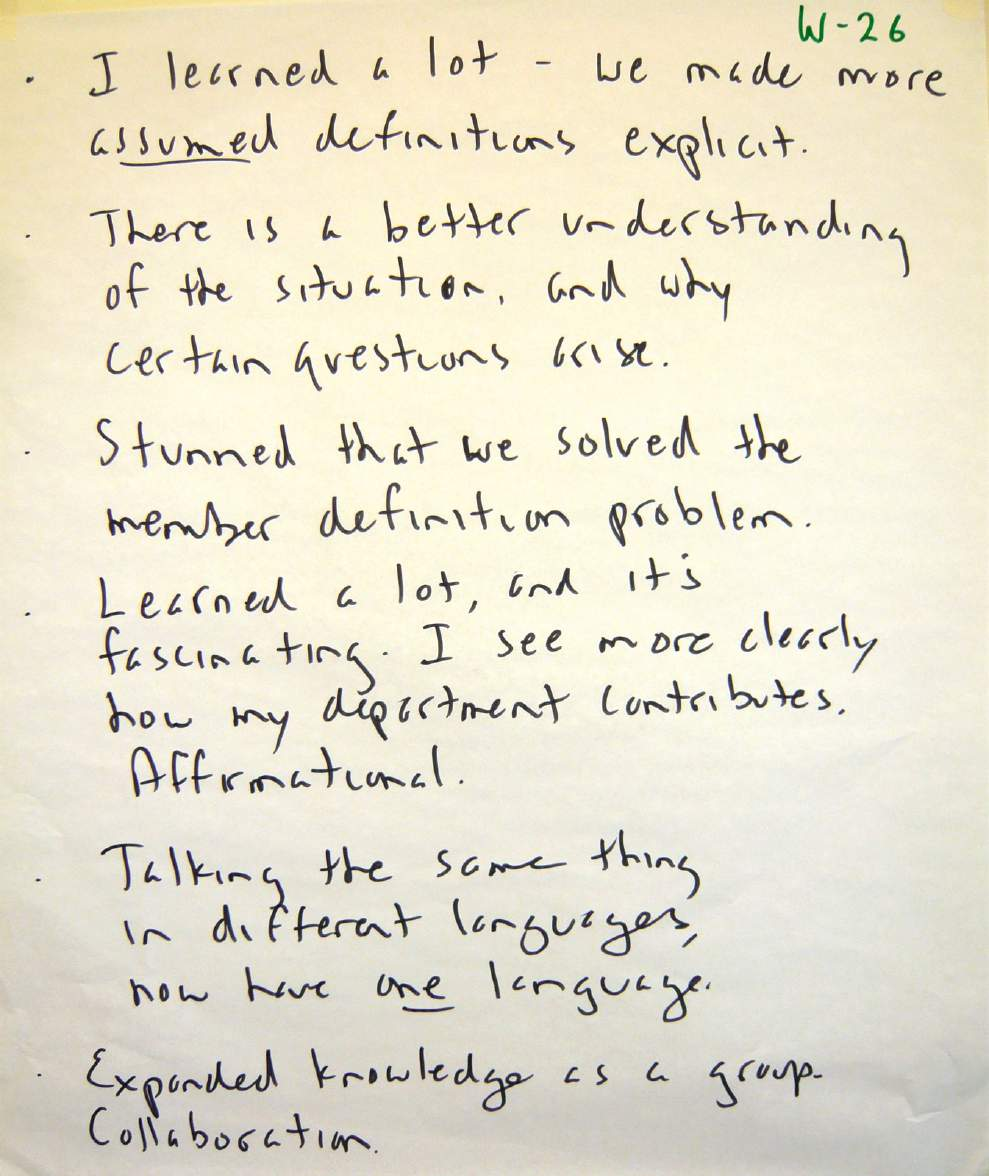 W-26
· I learned a lot - we made more
assumed definitions explicit.
· There is a better understanding
of the situation, and why
certain questions arise.
· Stunned that we solved the
member definition problem.
· Learned a lot, and it's
fascinating. I see more clearly
how my department contributes.
Affirmational.
· Talking the same thing
in different languages,
now have one language.
· Expanded knowledge as a group.
Collaboration.